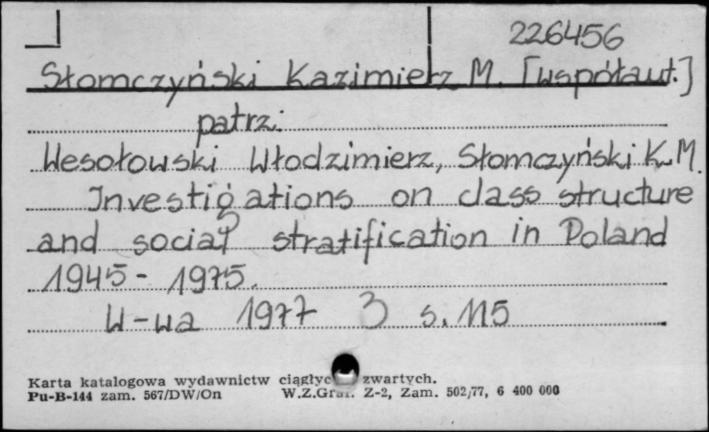 226456
Słomczyński Kazimierz M. [współaut.]
patrz:
Wesołowski Włodzimierz, Słomczyński K. M.
Investigations on class structure
and social stratification in Poland
1945 - 1975.
W-wa 1977 s. 115
Karta katalogowa wydawnictw zwartych.
Pu-B-144 zam. 567/DW/On W.Z.Graf. Z-2, Zam. 502/77, 6 400 000